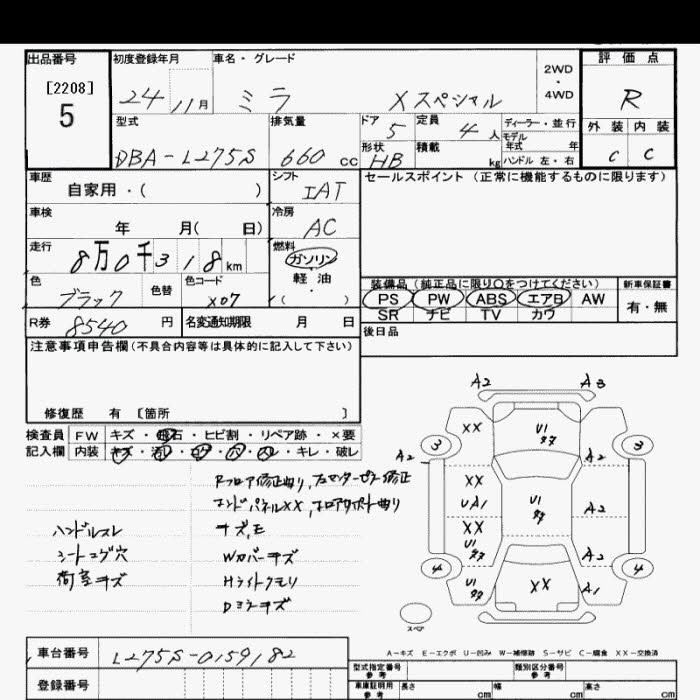 出品番号 初度登録年月 車名・グレード 2WD・4WD 評価点
[2208]
5
24 11月 ミラ Xスペシャル R
型式 排気量 ドア 5 定員 4人 ディーラー・並行 外装 内装
モデル年式 年
DBA-L275S 660cc 形状 HB 積載 kg ハンドル 左・右 C C
車歴 シフト セールスポイント (正常に機能するものに限ります)
自家用・( ) IAT
車検 冷房
年 月( 日) AC
走行 燃料
8万0千318km ガソリン
軽油
色 色替 色コード ・
ブラック X07 ( )
装備品(純正品に限り○をつけてください) 新車保証書
PS PW ABS エアB AW 有・無
SR ナビ TV カワ
R券 8540円 名変通知期限 月 日
後日品
注意事項申告欄(不具合内容等は具体的に記入して下さい)
修復歴 有 [箇所 ]
検査員 FW キズ・飛石・ヒビ割・リペア跡・×要
記入欄 内装 キズ・汚レ・コゲ・穴・スレ・キレ・破レ
Rフロア修正曲り,左センターピラー修正
エンドパネルXX,
ハンドルスレ キズ,E
シートコゲ穴 Wカバーキズ
荷室キズ Hライトクモリ
Dミラーキズ
A2 A3
XX U1 タタ
3 3
A2
XX
UA1 U1 タタ A2
XX
U1 タタ A2
4 4
U1 タタ XX A1
スペア
A-キズ E-エクボ U-凹み W-補修跡 S-サビ C-腐食 XX-交換済
車台番号 L275S-0159182
型式指定番号 参考 類別区分番号 参考
登録番号 車庫証明用 参考 長さ cm 幅 cm 高さ cm